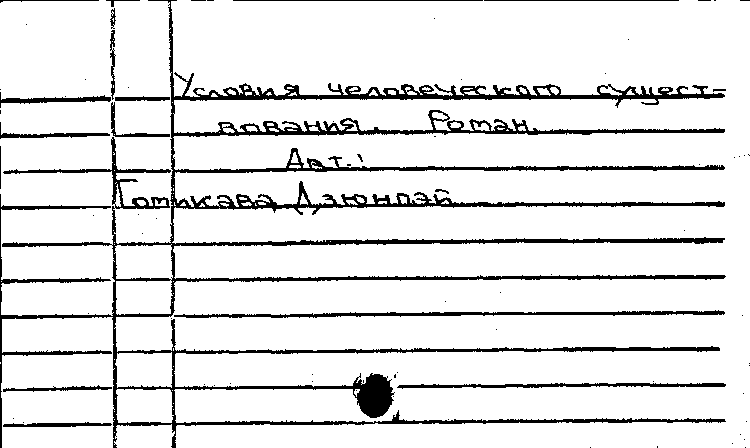 Условия человеческого сущест-
вования. Роман.
Авт.:
Гомикава Дзюнпэй